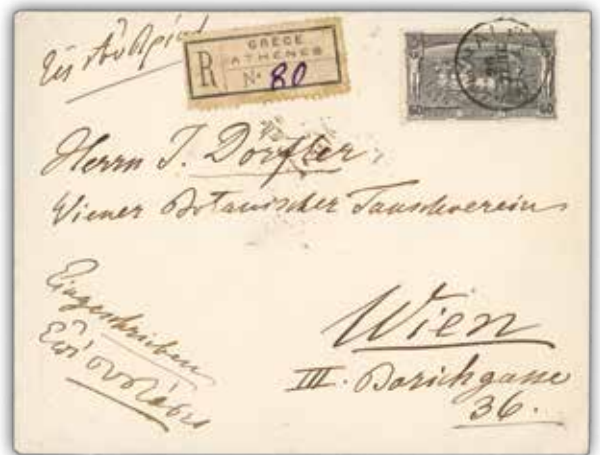 Εἰς Αὐστρίαν
R
GRÈCE
ATHÈNES
N° 80
60 60
Herrn I. Dörfler,
Wiener Botanischer Tauschverein
Eingeschrieben
Ἐπὶ συστάσει
Wien
III. Barichgasse
36.